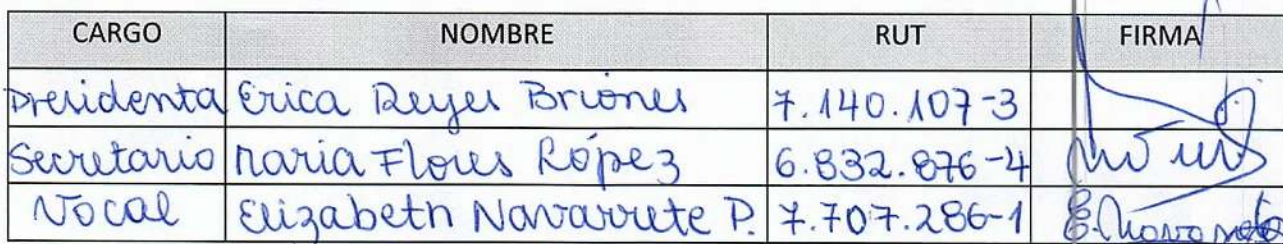 CARGO NOMBRE RUT FIRMA
Presidenta Erica Reyes Briones 7.140.107-3
Secretario Maria Flores López 6.832.876-4
Vocal Elizabeth Navarrete P. 7.707.286-1 E. Navarrete